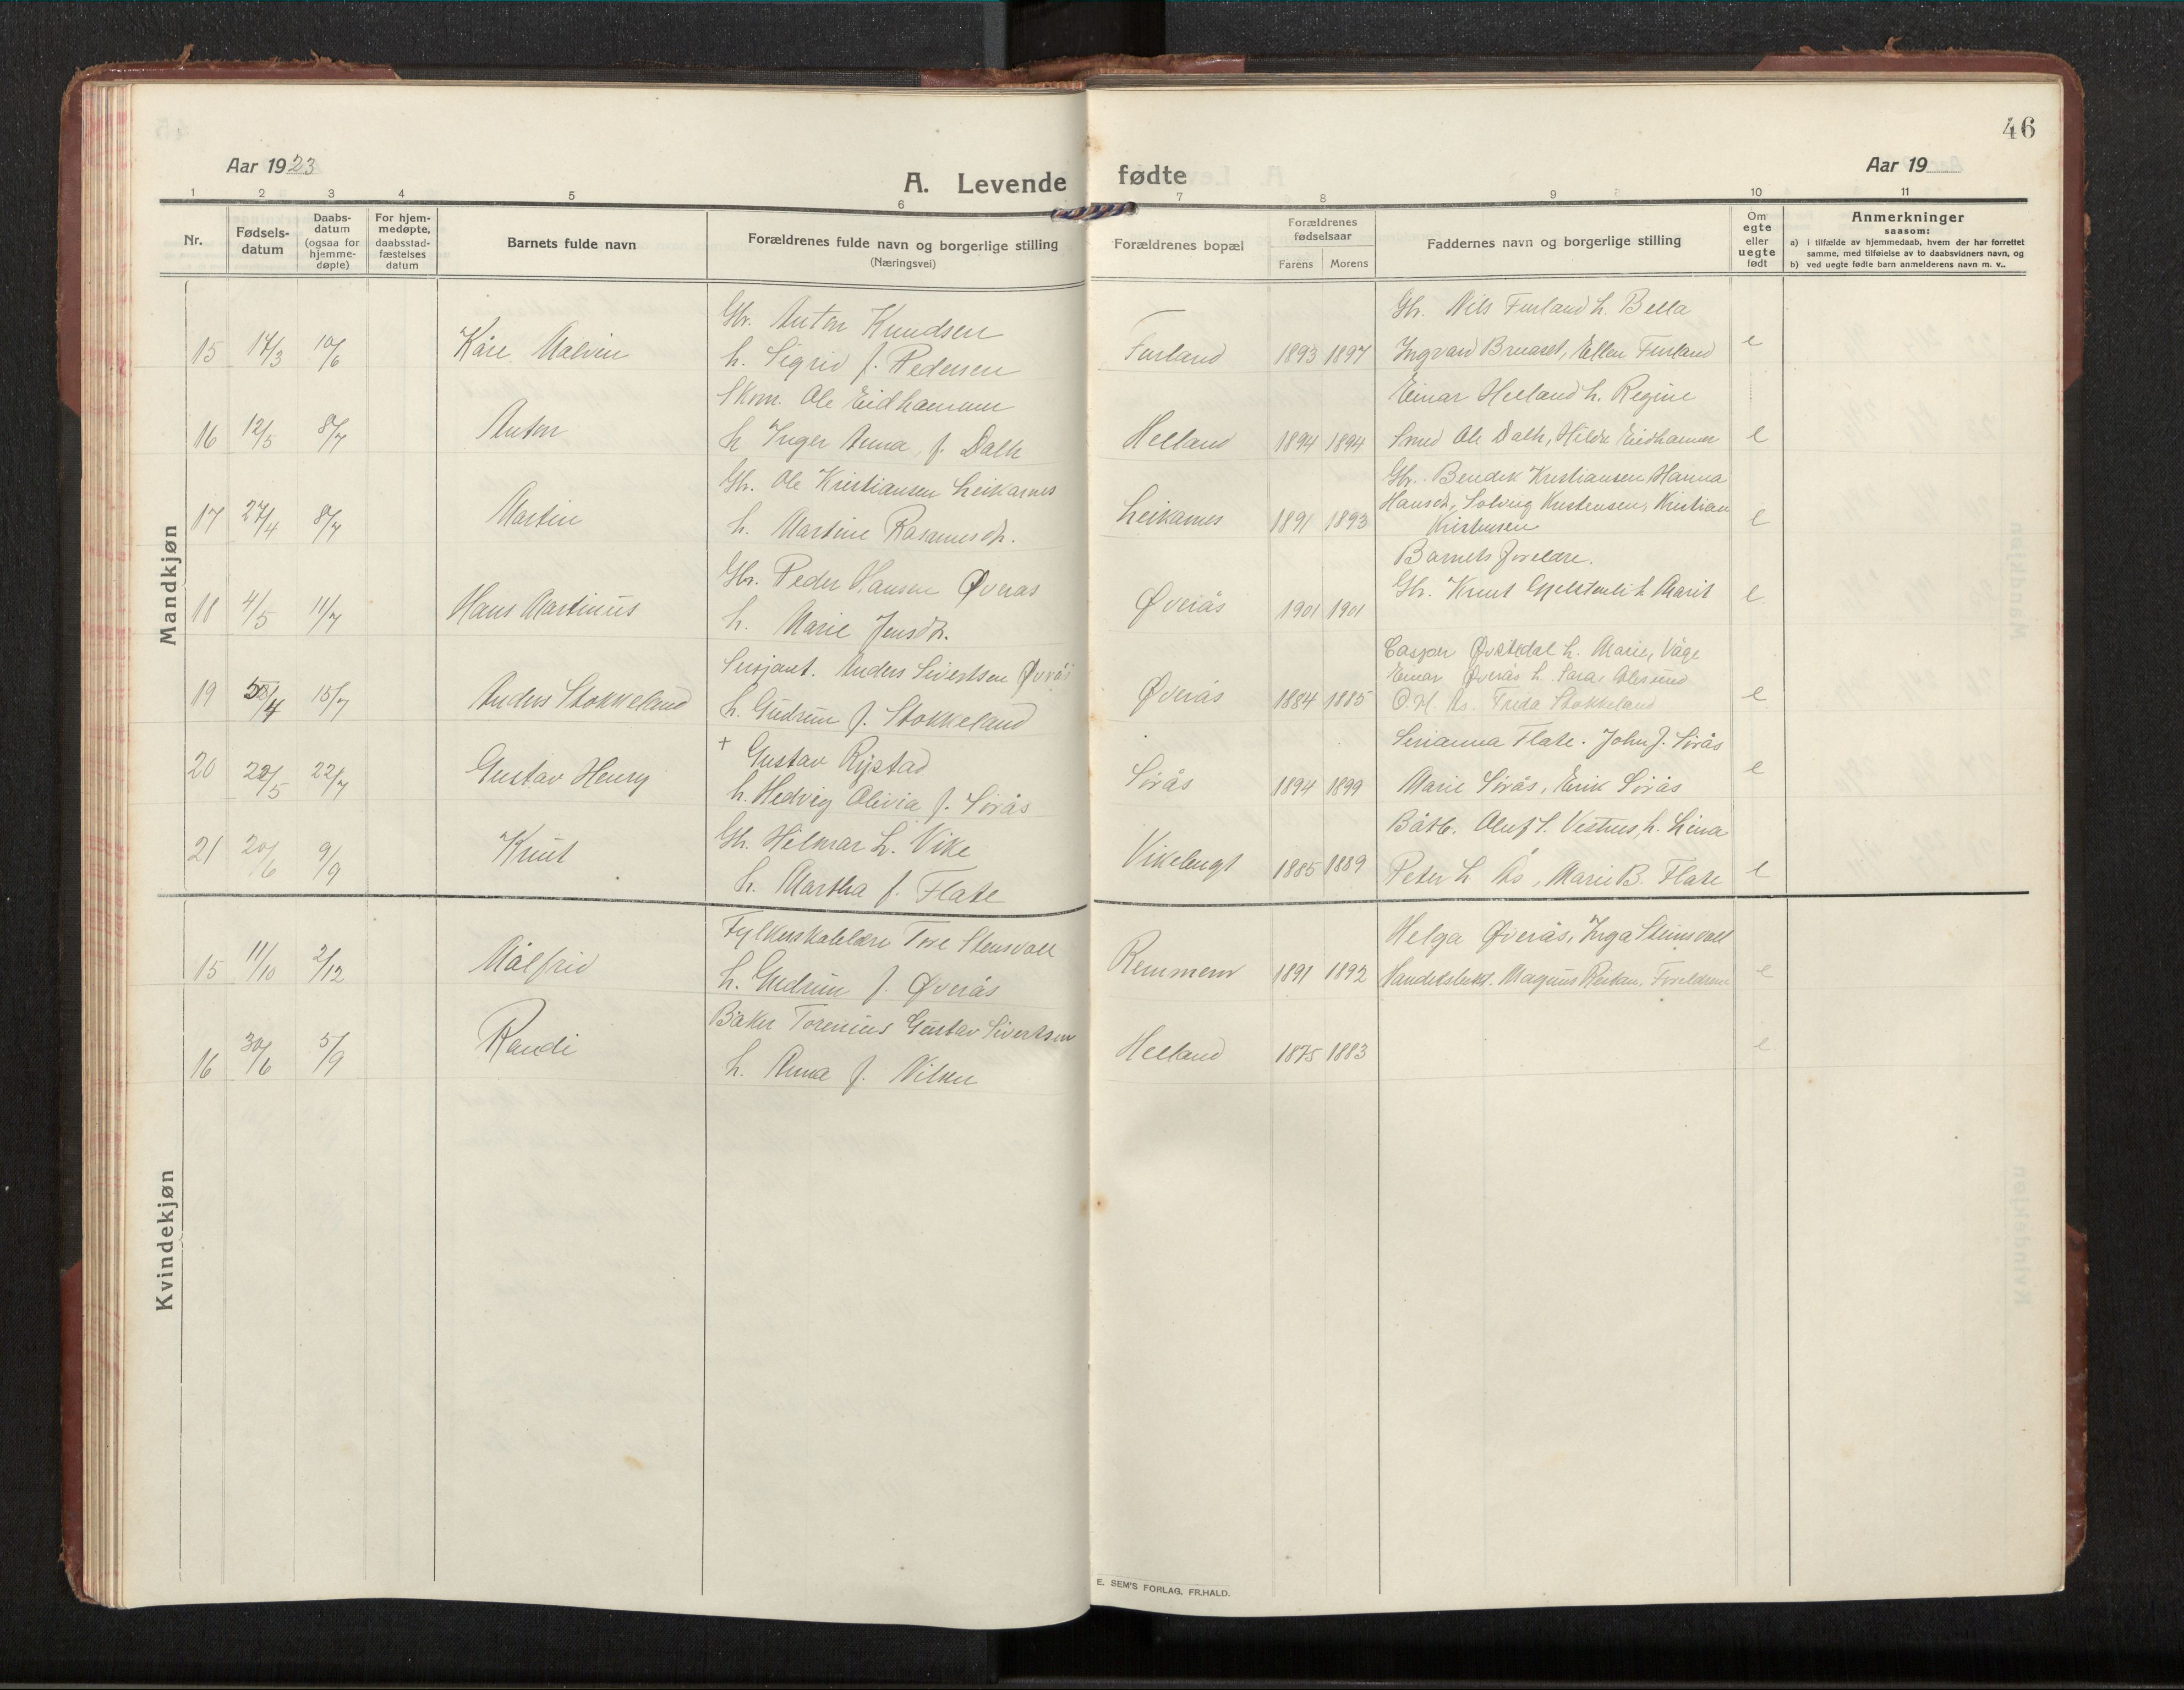 46
Aar 1923
A. Levende fødte
Aar 19
1 2 3 4 5 6 7 8 9 10 11
Nr.
Fødsels-
datum
Daabs-
datum
(ogsaa for
hjemme-
døpte)
For hjem-
medøpte,
daabsstad-
fæstelses
datum
Barnets fulde navn
Forældrenes fulde navn og borgerlige stilling
(Næringsvei)
Forældrenes bopæl
Forældrenes
fødselsaar
Farens Morens
Faddernes navn og borgerlige stilling
Om
egte
eller
uegte
født
Anmerkninger
saasom:
a) i tilfælde av hjemmedaab, hvem der har forrettet
samme, med tilføielse av to daabsvidners navn, og
b) ved uegte fødte barn anmelderens navn m. v..
Mandkjøn
Gbr. Anton Knudsen
Gbr. Nils Furland h. Bella
15 14/3 10/6 Kåre Malvin
h. Sigrid f. Pedersen
Furland 1893 1897 Ingvard Bruaset, Ellen Furland e
Skom. Ole Eidhammer
Einar Helland h. Regine
16 12/5 8/7 Anton
h. Inger Anna, f. Dalh
Helland 1894 1894 Smed Ole Dalh, Hilda Eidhamer e
Gbr. Ole Kristiansen Leikarnes
Gbr. Bendik Kristiansen, Hanna
Hansdt, Solveig Kristensen, Kristian
17 27/4 8/7 Martin
h. Martine Rasmusdtr.
Leikarnes 1891 1893 Kristensen e
Gbr. Peder Hansen Øveras
Barnets foreldre.
18 4/5 11/7 Hans Martinus
h. Marie Jensdtr.
Øverås 1901 1901 Gbr. Knut h Marit e
Sersjant. Anders Sivertsen Øverås
Casper h. Marie, Våge
Einar Øverås h. Sara, Ålesund
19 /4 15/7 Anders Stokkeland
h. Gudrun f. Stokkeland
Øverås 1884 1885 O.H. Ås. Frida Stokkeland e
+ Gustav Rypstad
Serianna Flate. John J. Sørås
20 /5 22/7 Gustav Henry
h. Hedvig Olivia f. Sørås
Sørås 1894 1899 Marie Sørås, Erik Sørås e
Gbr. Hilmar L. Vike
Båtb. Oluf S. Vestnes, h. Lina
21 20/6 9/9 Knut
h. Martha f. Flate
Vikebugt 1885 1889 Peter L Ås, Marie B. Flate e
Kvindekjøn
Fylkesskolelære Tore Stensvoll
Helga Øverås, Inga Steinsvoll
15 11/10 2/12 Målfrid
h. Gudrun f. Øverås
Remmem 1891 1892 Handelsbest. Magnus Reitan, Foreldrene e
Baker Torenius Gustav Sivertsen
16 30/6 5/9 Randi
h. Anna f. Nilsen
Helland 1875 1883 e
E. SEM'S FORLAG, FR.HALD.